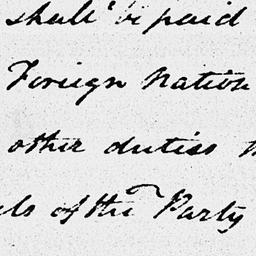 shall be paid
Foreign Nation
other duties
of the Party